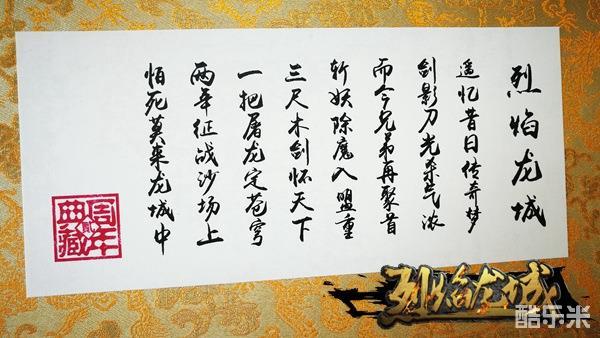 烈焰龙城
遥忆昔日传奇梦
剑影刀光杀气浓
而今兄弟再聚首
斩妖除魔入盟重
三尺木剑怀天下
一把屠龙定苍穹
两年征战沙场上
怕死莫来龙城中
周年
典藏
烈焰龙城
酷乐米